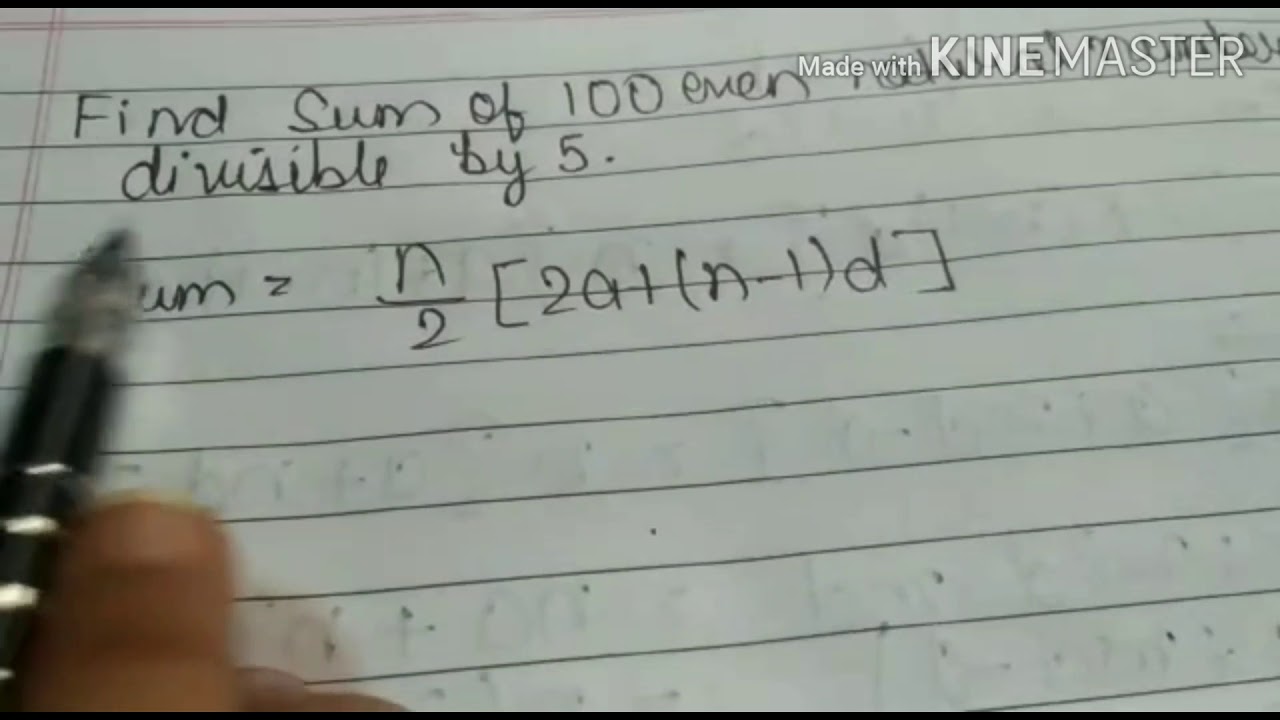 Made with KINEMASTER
Find Sum of 100 even
divisible by 5.
um = n/2 [2a+(n-1)d]